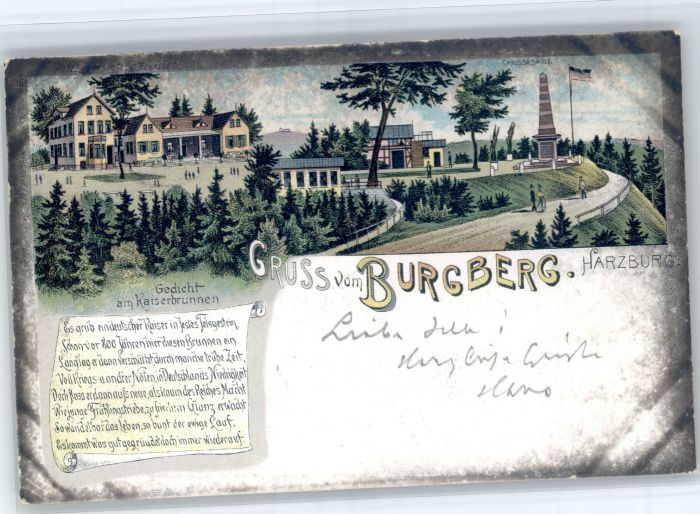 CANOSSASÄULE
GRUSS vom BURGBERG. HARZBURG.
Gedicht
am Kaiserbrunnen
Es grub ein deutscher Kaiser in festes Felsgestein,
Schon vor 800 Jahren hier diesen Brunnen ein.
Lang lag er dann verschüttet durch manche trübe Zeit,
Voll Kriegs- u. andrer Nöten, in Deutschlands Niedrigkeit
Doch floss er dann aufs neue, als kaum des Reiches Macht
Wie junge Frühlingstriebe, zu frischem Glanz erwacht
So wandelbar das Leben, so bunt der ewige Lauf,
Es kommt was gut gegründet doch immer wieder auf.
Liebe !
Herz Grüße